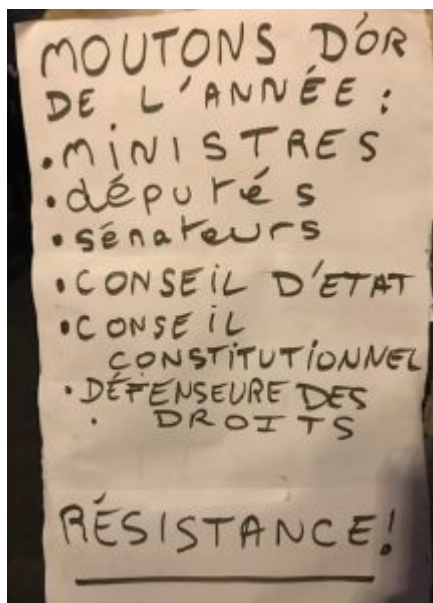 MOUTONS D'OR
DE L'ANNÉE :
• MINISTRES
• députés
• sénateurs
• CONSEIL D'ETAT
• CONSEIL
CONSTITUTIONNEL
• DÉFENSEURE DES
• DROITS
RÉSISTANCE!